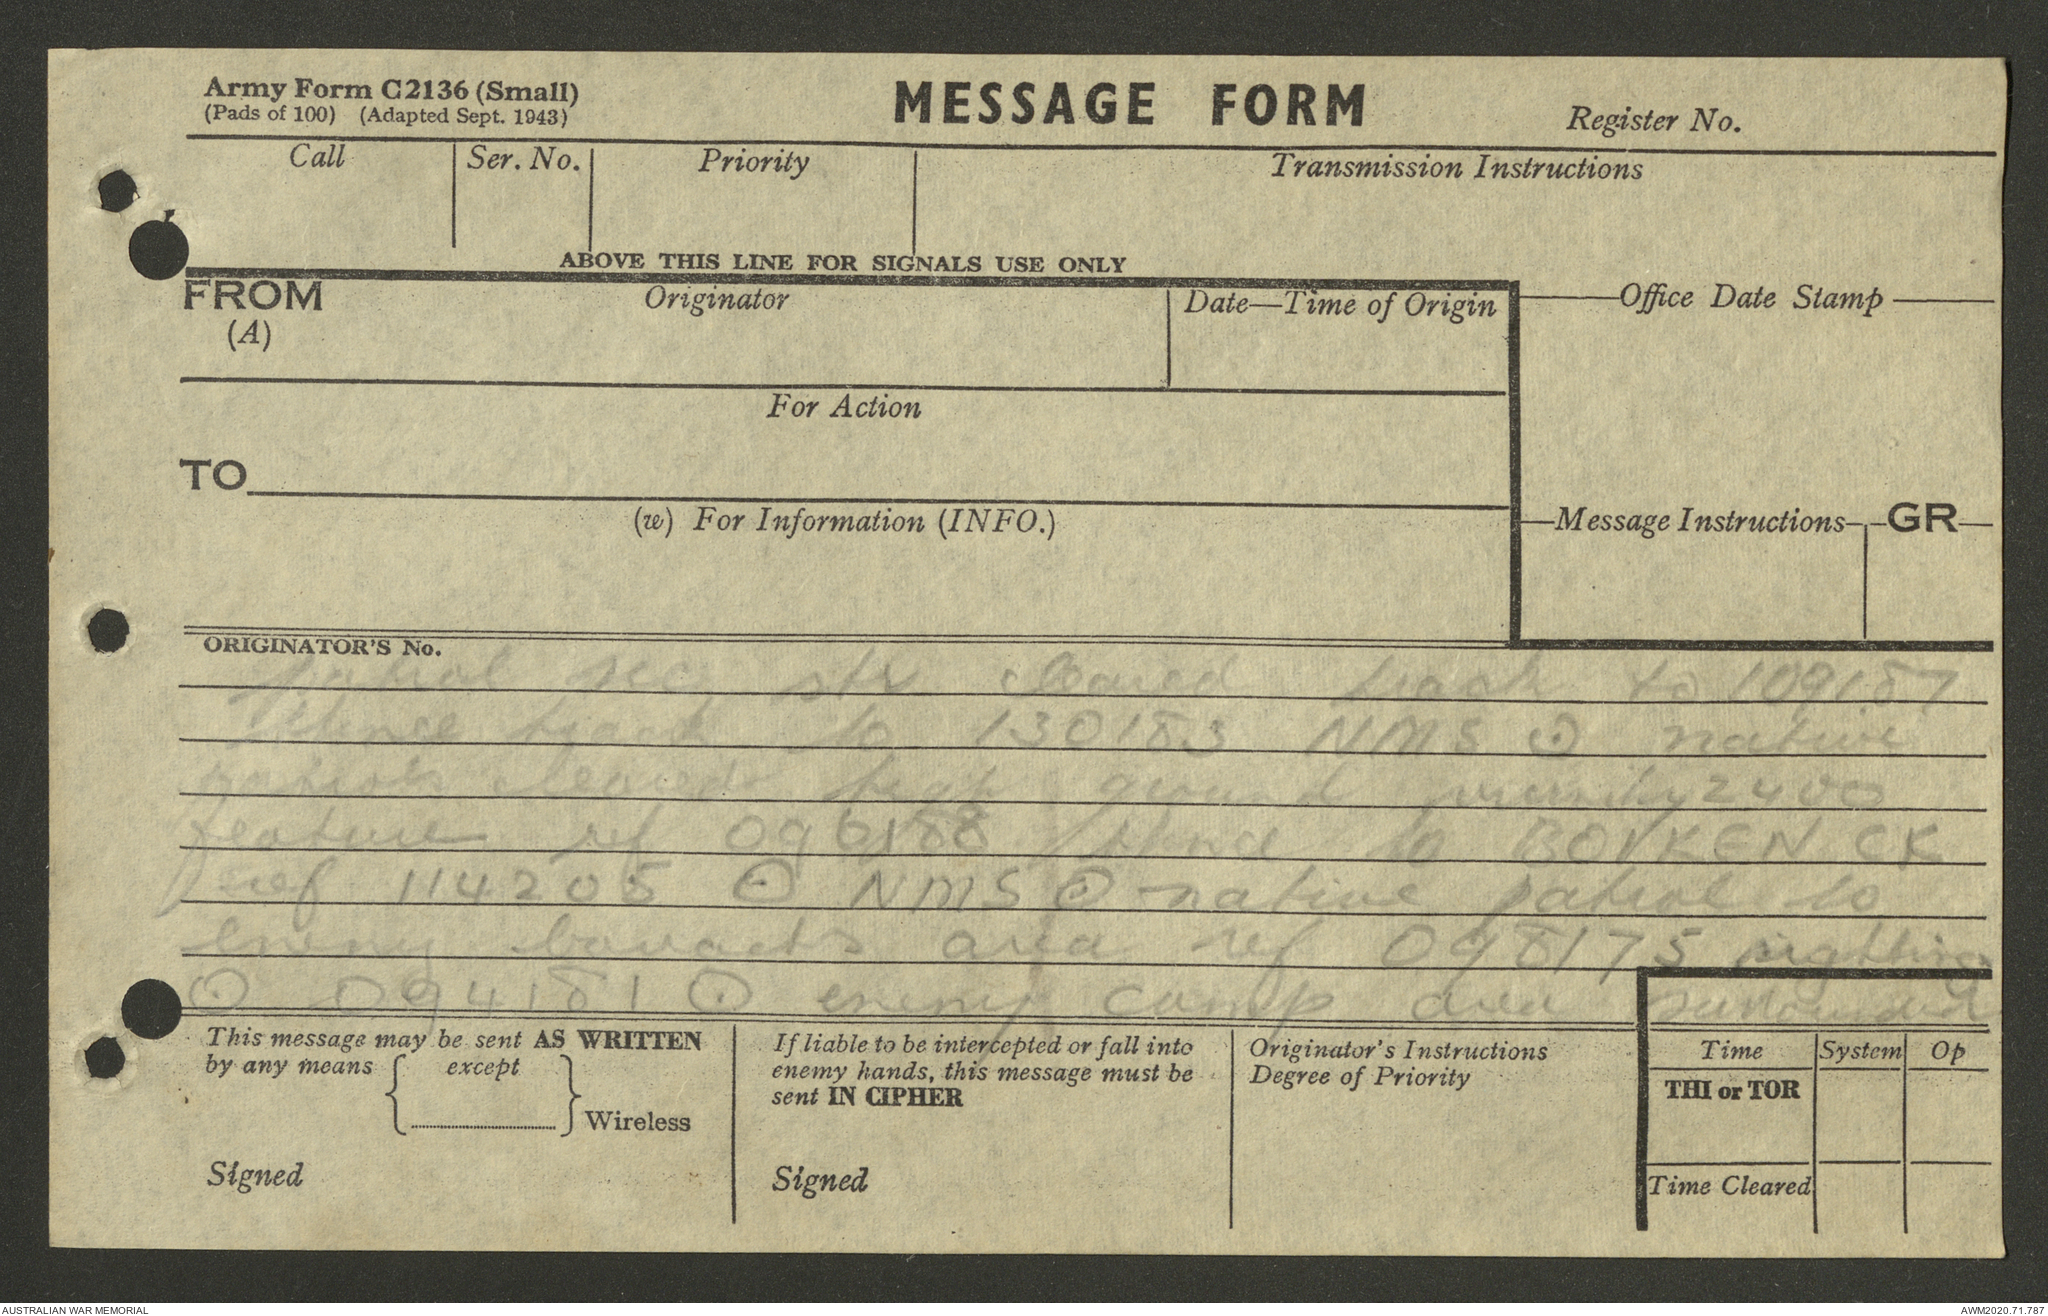 Army Form C2136 (Small)
(Pads of 100) (Adapted Sept. 1943)
MESSAGE FORM
Register No.
Call
Ser. No.
Priority
Transmission Instructions
ABOVE THIS LINE FOR SIGNALS USE ONLY
FROM
(A)
Originator
Date—Time of Origin
Office Date Stamp
For Action
TO
(w) For Information (INFO.)
Message Instructions
GR
ORIGINATOR'S No.
patrol sec str cleared track to 109187
thence track to 130183 NMS ⊙ native
patrols cleared high ground vicinity 2400
feature ref 096188 thence to BOVKEN CK
ref 114205 ⊙ NMS ⊙ native patrol to
enemy barracks area ref 098175 sighting
⊙ 094181 ⊙ enemy camp area surrounded
This message may be sent AS WRITTEN
by any means { except } Wireless
Signed
If liable to be intercepted or fall into
enemy hands, this message must be
sent IN CIPHER
Signed
Originator's Instructions
Degree of Priority
Time
System
Op
THI or TOR
Time Cleared
AUSTRALIAN WAR MEMORIAL
AWM2020.71.787